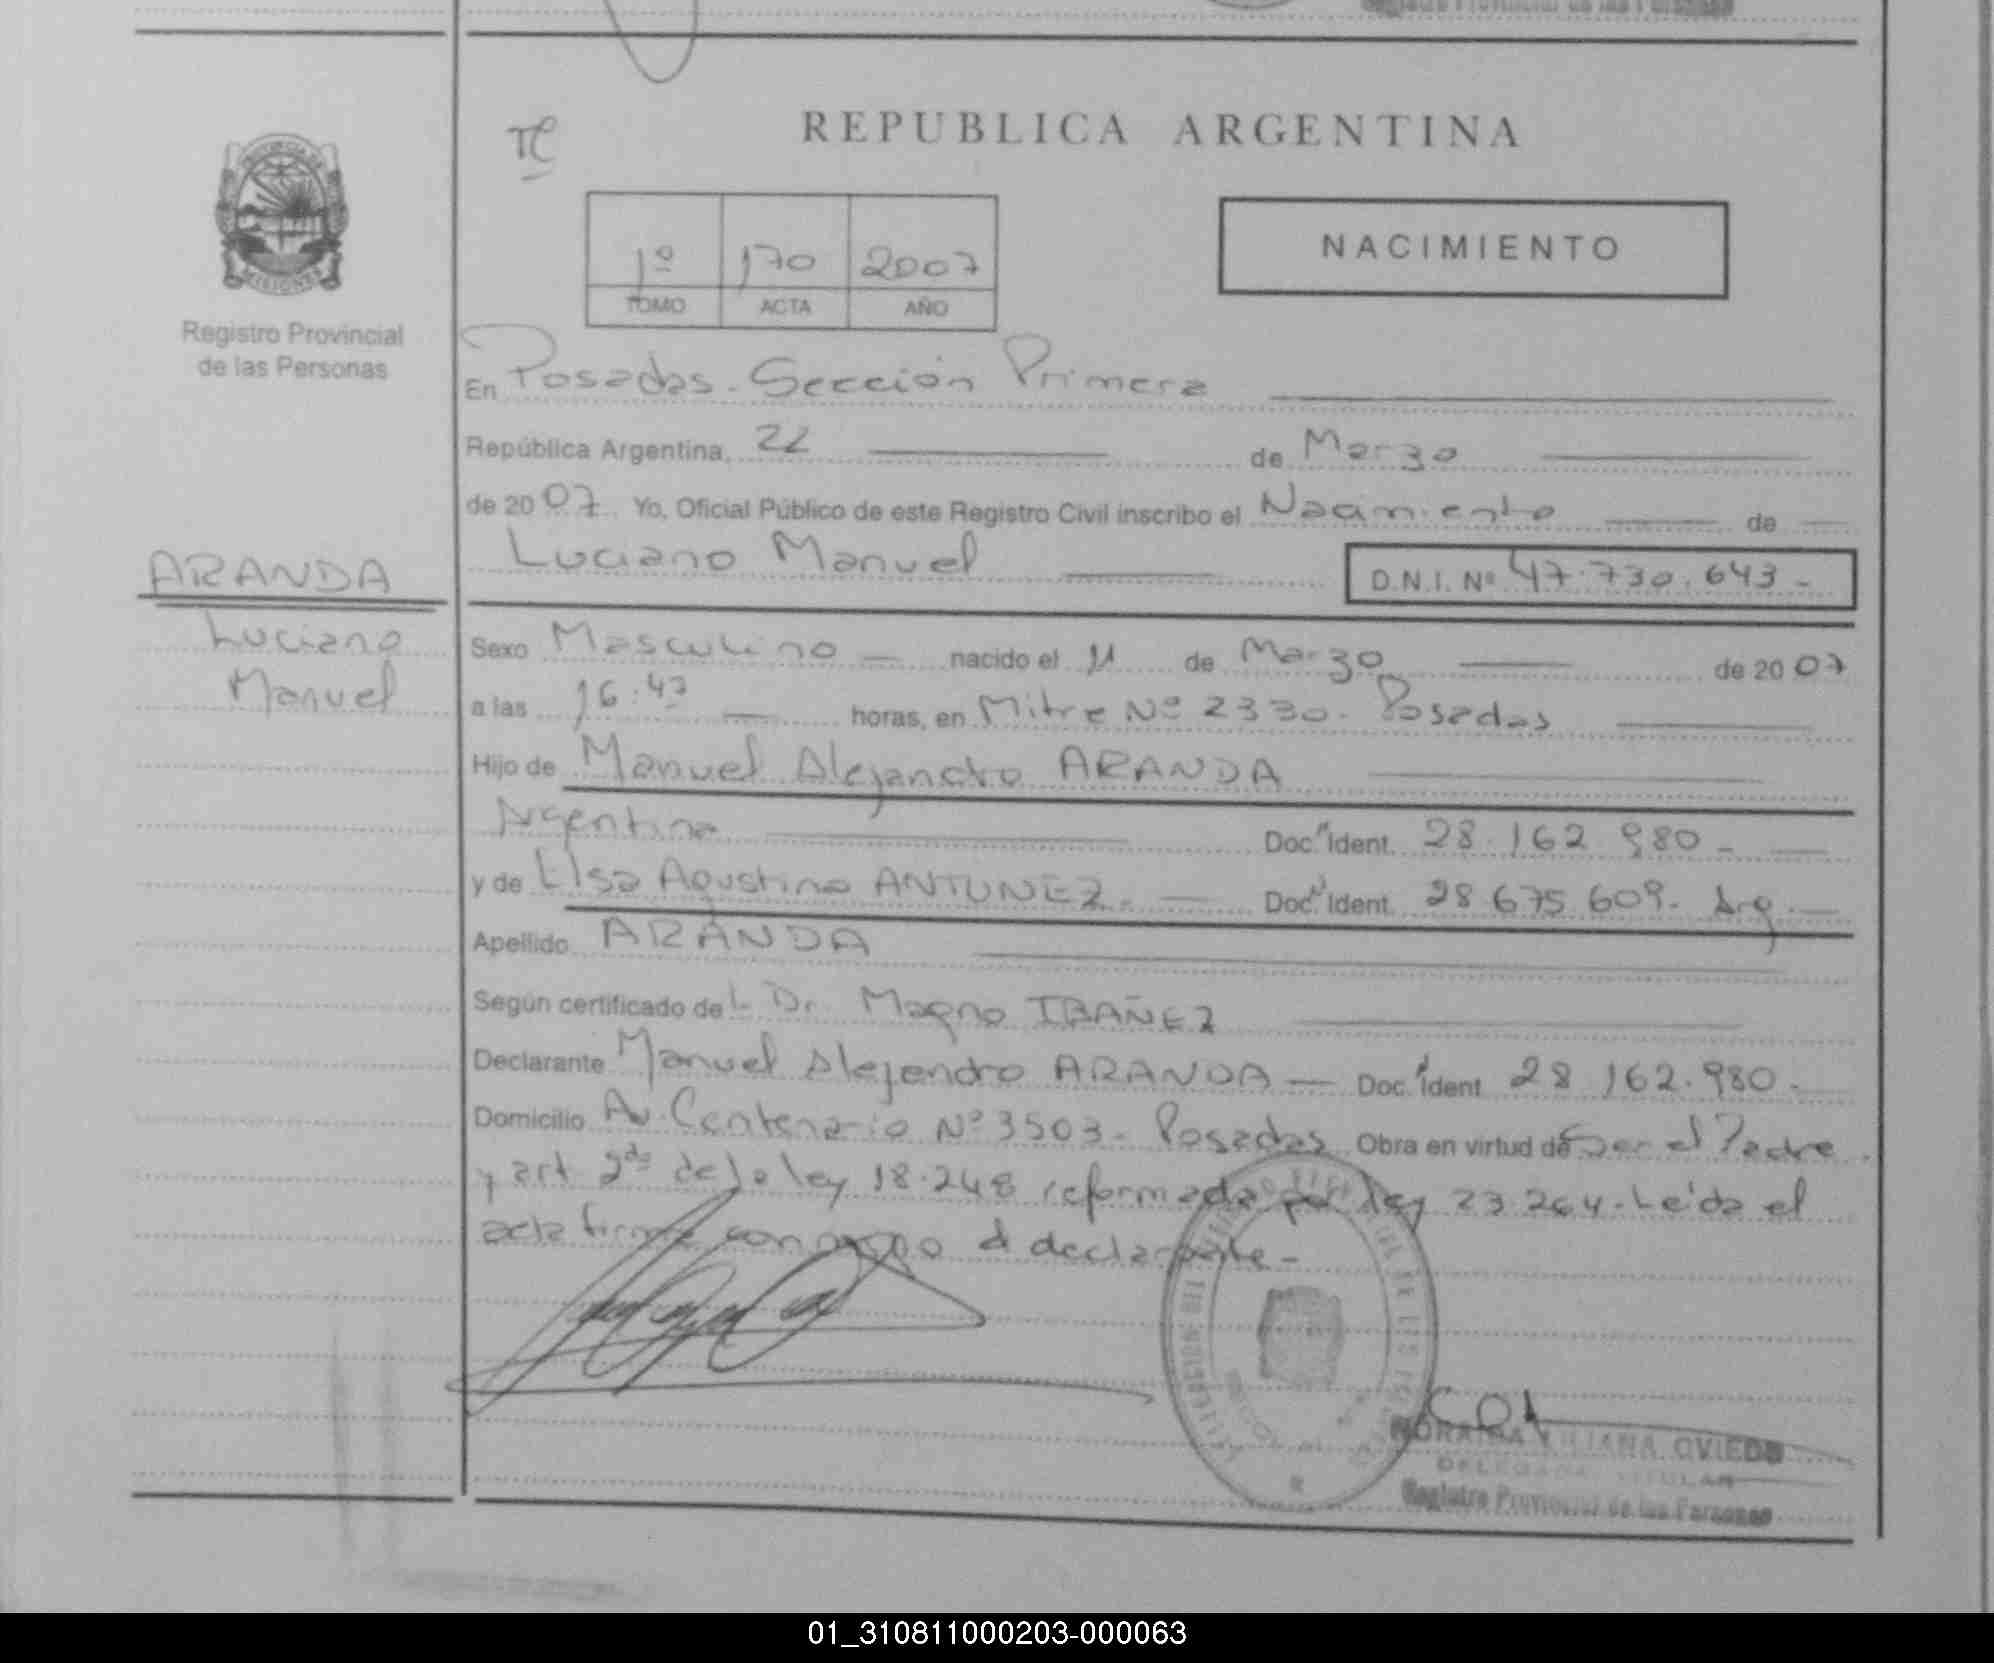 REPUBLICA ARGENTINA
NACIMIENTO
1º 170 2007
TOMO ACTA AÑO
Registro Provincial
de las Personas
En Posadas - Sección Primera
República Argentina, 22 de Marzo
de 2007 Yo, Oficial Público de este Registro Civil inscribo el Nacimiento de
Luciano Manuel D.N.I. Nº 47.730.643-
ARANDA
Luciano
Manuel
Sexo Masculino nacido el 11 de Marzo de 2007
a las 16:47 horas, en Mitre Nº 2330. Posadas
Hijo de Manuel Alejandro ARANDA
Argentina Doc. Ident. 28.162.980-
y de Elsa Agustina ANTUNEZ. Doc. Ident. 28.675.609. Arg.
Apellido ARANDA
Según certificado del Dr. Magno IBAÑEZ
Declarante Manuel Alejandro ARANDA Doc. Ident 28.162.980.
Domicilio Av. Centenario Nº 3503. Posadas Obra en virtud de Ser el Padre
y art 2do de la ley 18.248 reformada por ley 23.264. Leída el
acta firma conmigo el declarante-
LILIANA OVIEDO
DELEGADA TITULAR
Registro Provincial de las Personas
01_310811000203-000063